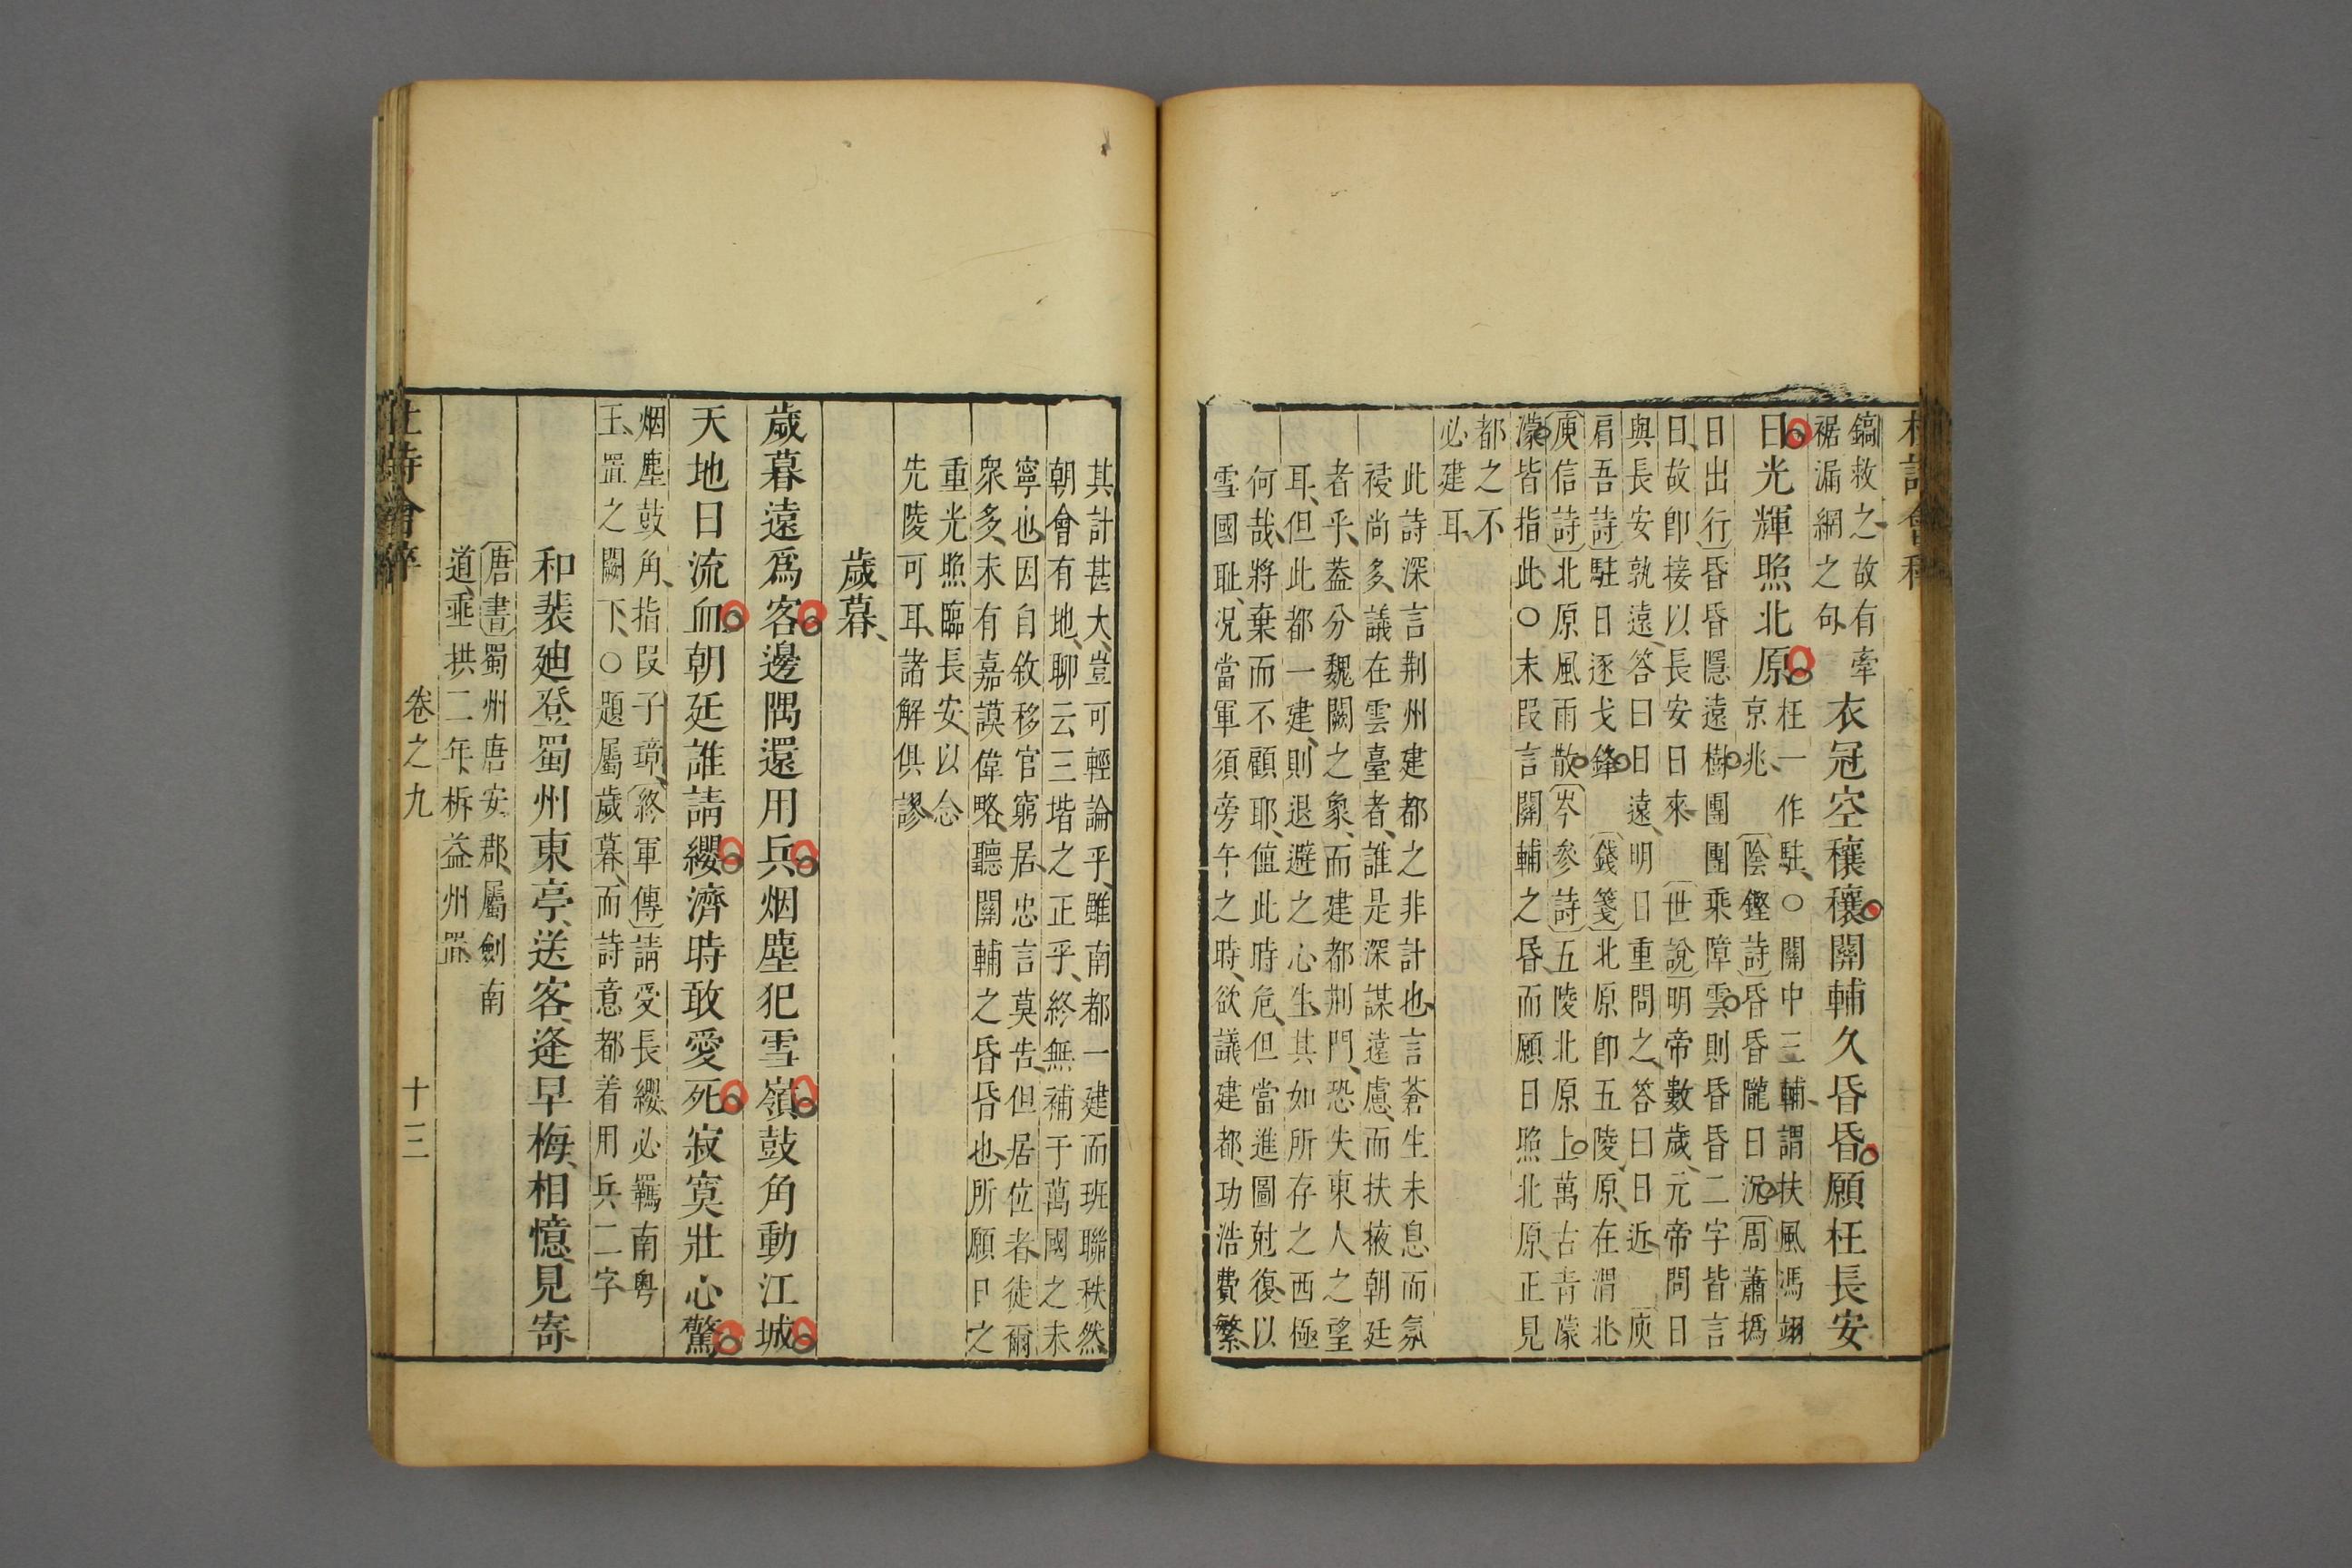 鎬救之故有牽
裾漏網之句
衣冠空穰穰關輔久昏昏願枉長安
日光輝照北原
枉一作駐○關中三輔謂扶風馮翊
京兆陰鏗詩昏昏隴日沉周蕭撝
日出行昏昏隱遠樹團團乘障雲則昏昏二字皆言
日故卽接以長安日來世說明帝數歲元帝問曰日
與長安孰遠答曰日遠明日重問之答曰日近庾
肩吾詩駐日逐戈鋒錢箋北原卽五陵原在渭北
庾信詩北原風雨散岑參詩五陵北原上萬古青濛
濛皆指此○末段言關輔之昏而願日照北原正見
都之不
必建耳
此詩深言荆州建都之非計也言蒼生未息而氛
祲尚多議在雲臺者誰是深謀遠慮而扶掖朝廷
者乎葢分魏闕之象而建都荆門恐失東人之望
耳但此都一建則退避之心生其如所存之西極
何哉將棄而不顧耶値此時危但當進圖尅復以
雪國耻况當軍須旁午之時欲議建都功浩費繁
其計甚大豈可輕論乎雖南都一建而班聯秩然
朝會有地聊云三堦之正乎終無補于萬國之未
寧也因自敘移官窮居忠言莫告但居位者徒爾
衆多未有嘉謨偉略聽關輔之昏昏也所願日之
重光照臨長安以念
先陵可耳諸解俱謬
歲暮
歲暮遠爲客邊隅還用兵烟塵犯雪嶺鼓角動江城
天地日流血朝廷誰請纓濟時敢愛死寂寞壯心驚
烟塵鼓角指段子璋終軍傳請受長纓必羈南粵
王置之闕下○題屬歲暮而詩意都着用兵二字
和裴廸登蜀州東亭送客逢早梅相憶見寄
唐書蜀州唐安郡屬劍南
道埀拱二年析益州置
杜詩會稡
卷之九
十三